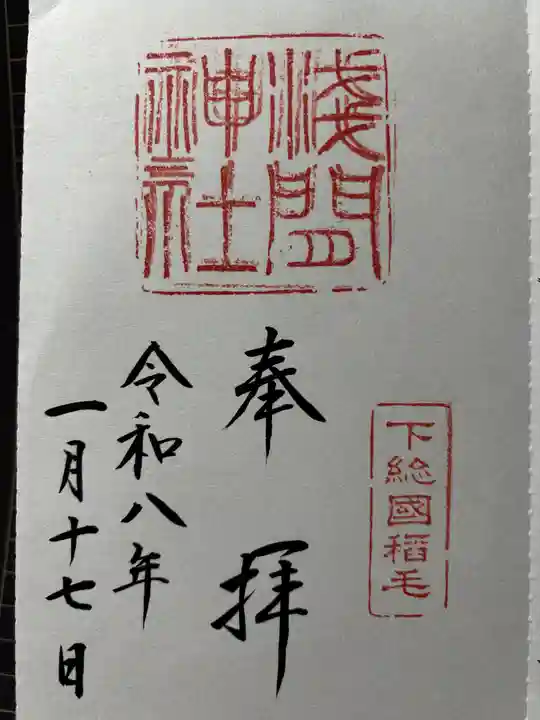 浅間
神社
下総國稲毛
奉拝
令和八年
一月十七日